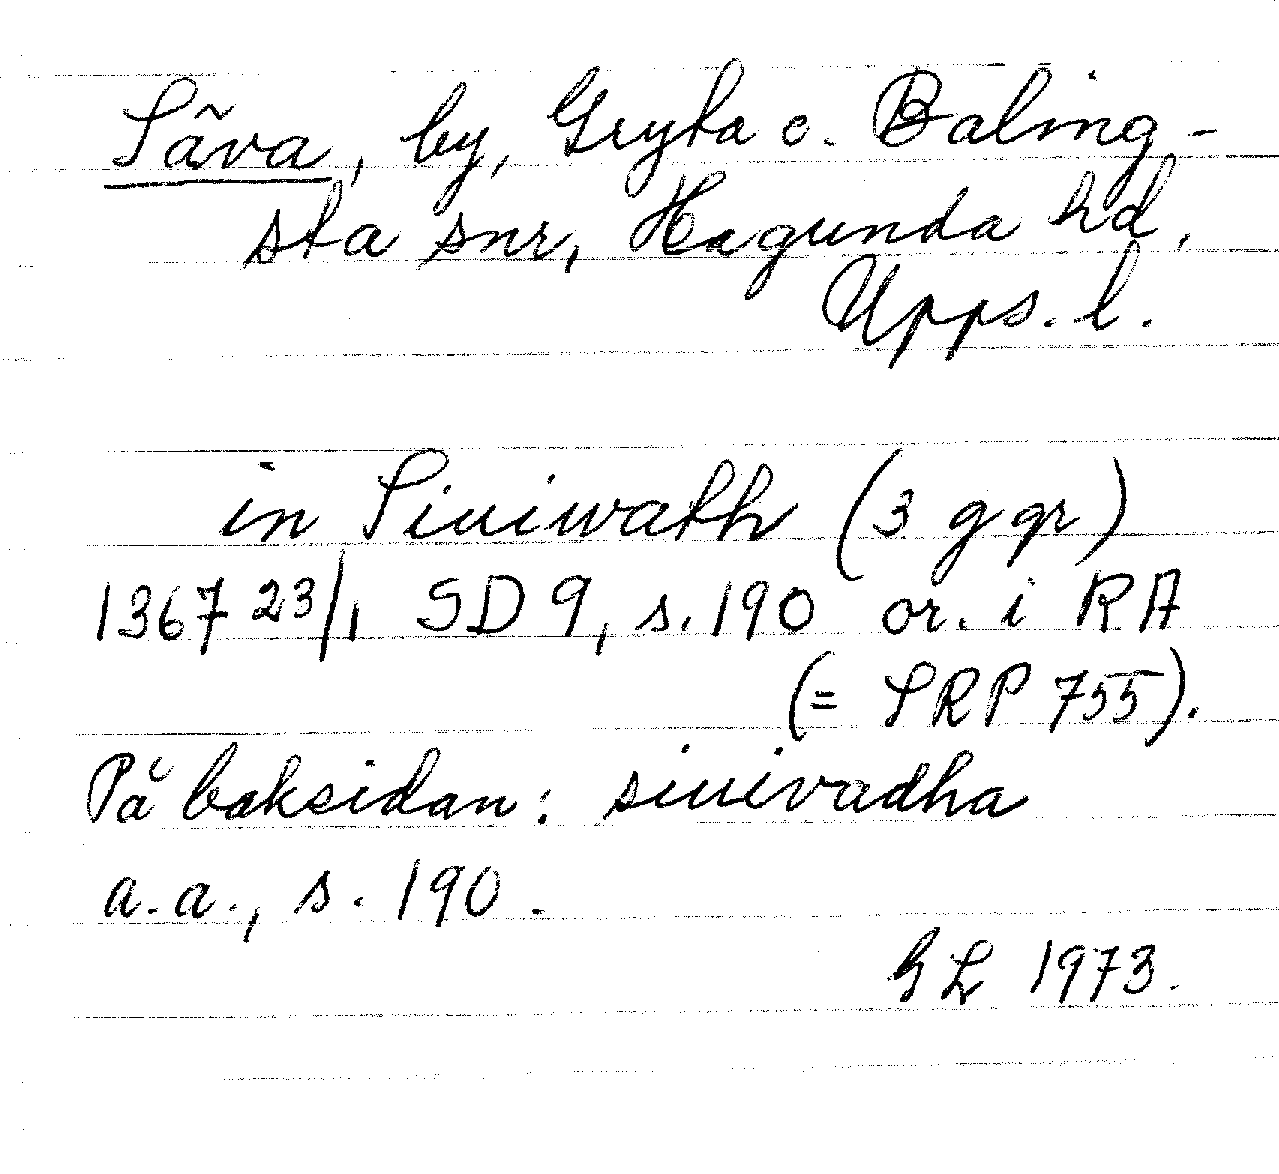 Säva, by, Gryta o. Baling-
sta snr, Hagunda hd,
Upps. l.
in Siuiwath (3 ggr)
1367 23/1 SD 9, s. 190 or. i RA
(= SRP 755).
På baksidan: siuivadha
a.a., s. 190.
GL 1973.